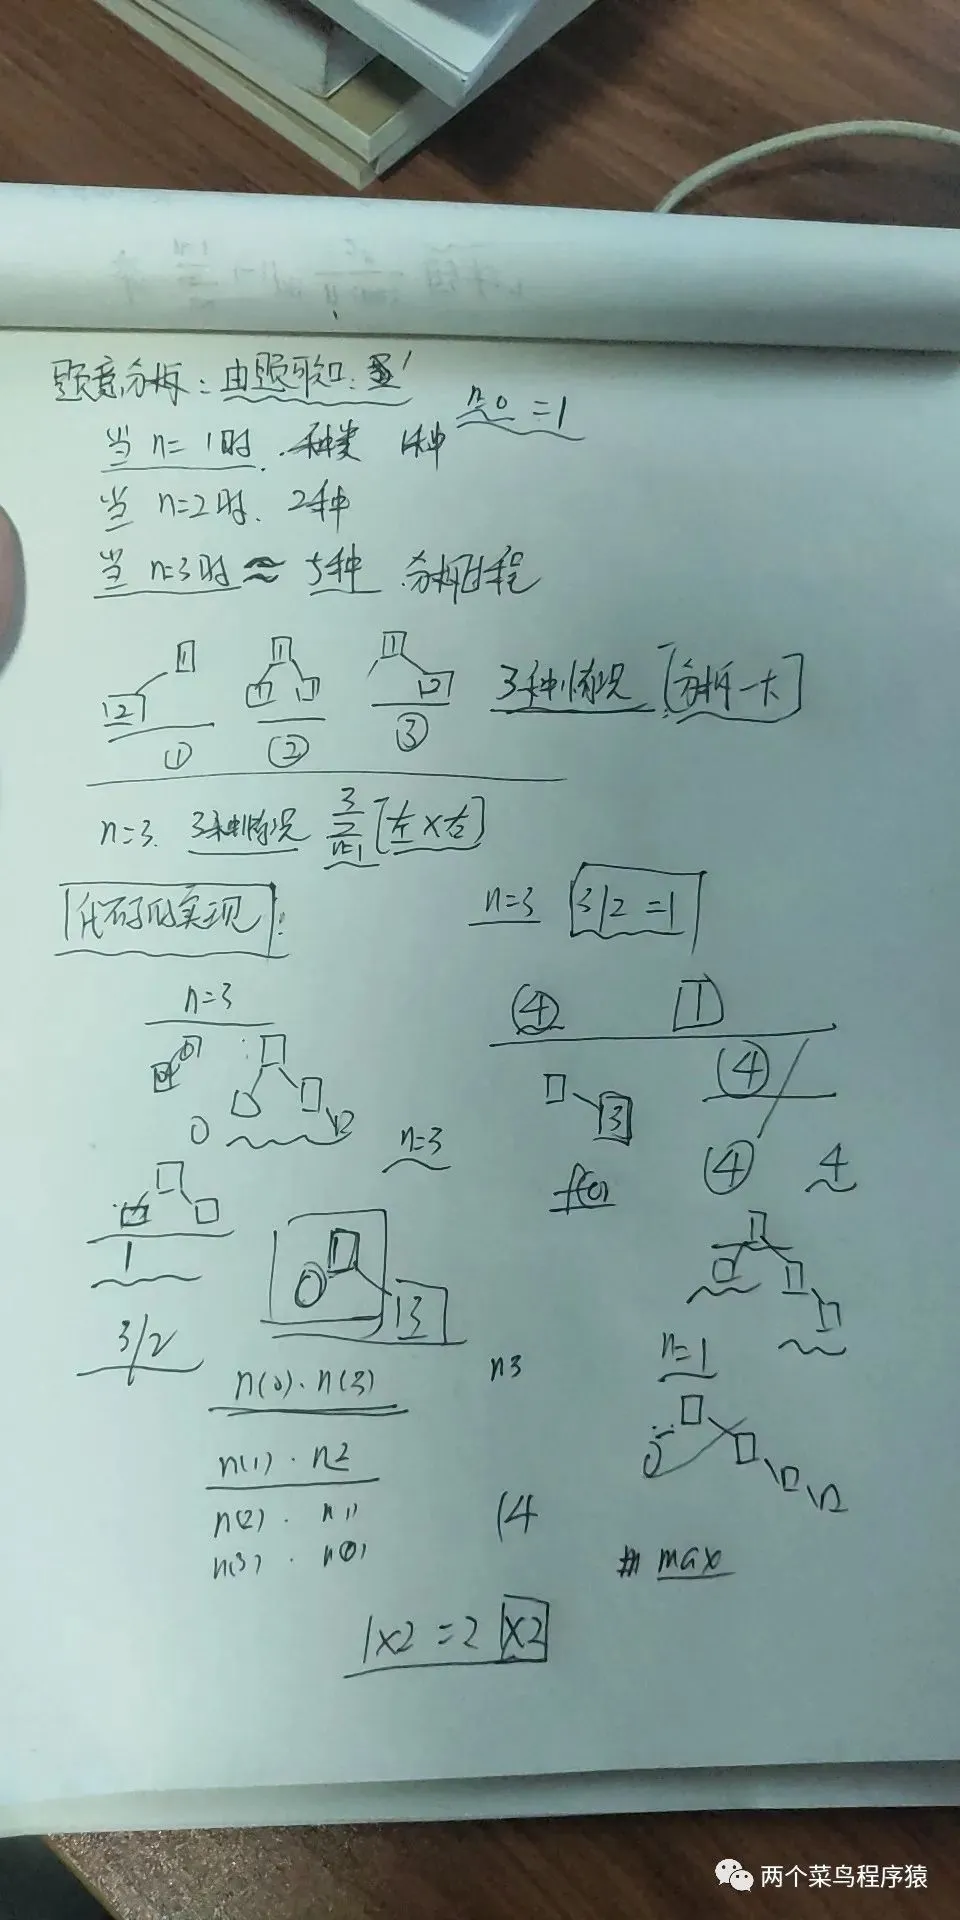 题意分析：由题可知：
n=0 =1
当 n=1时. 种类 1种
当 n=2时. 2种
当 n=3时 ≈ 5种 分析过程
1 1 1
2 1 1 2 3种情况 [分析一下]
① ② ③
n=3. 3种情况 [左×右]
n=3 3/2 =1
代码的实现：
n=3
④ 1
④
0
3
n=3
④ 4
f(0)
1
0 1
3
3/2
n=1
n(0)·n(3)
n3
n(1)·n2
n(2)· n1
(4
n(3)· n(0)
max
1×2 =2 ×2
两个菜鸟程序猿